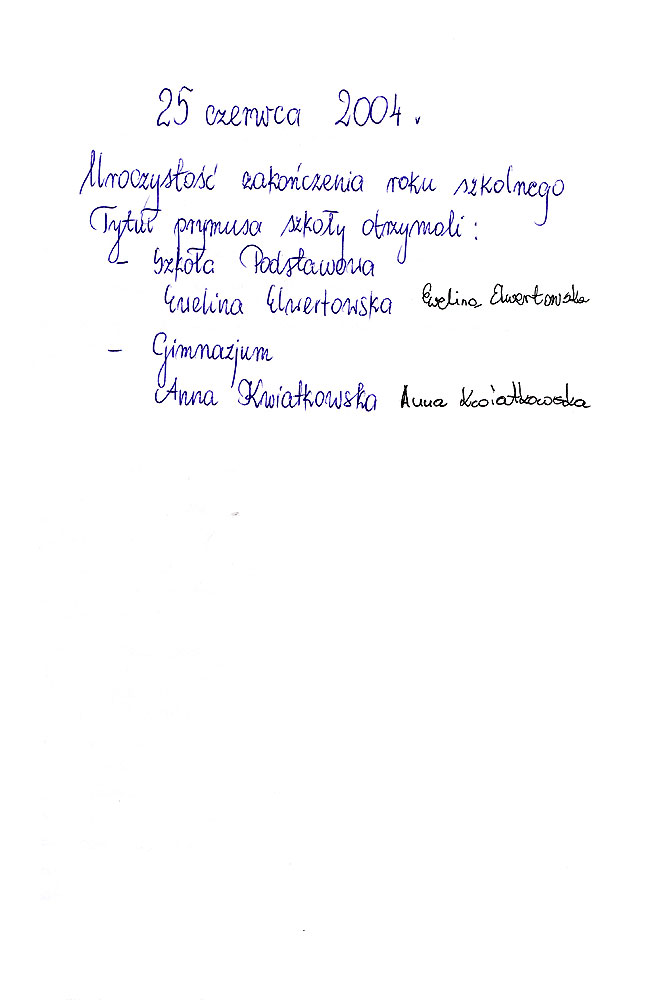 25 czerwca 2004.
Uroczystość zakończenia roku szkolnego
Tytuł prymusa szkoły otrzymali:
- Szkoła Podstawowa
Ewelina Elwertowska Ewelina Elwertowska
- Gimnazjum
Anna Kwiatkowska Anna Kwiatkowska